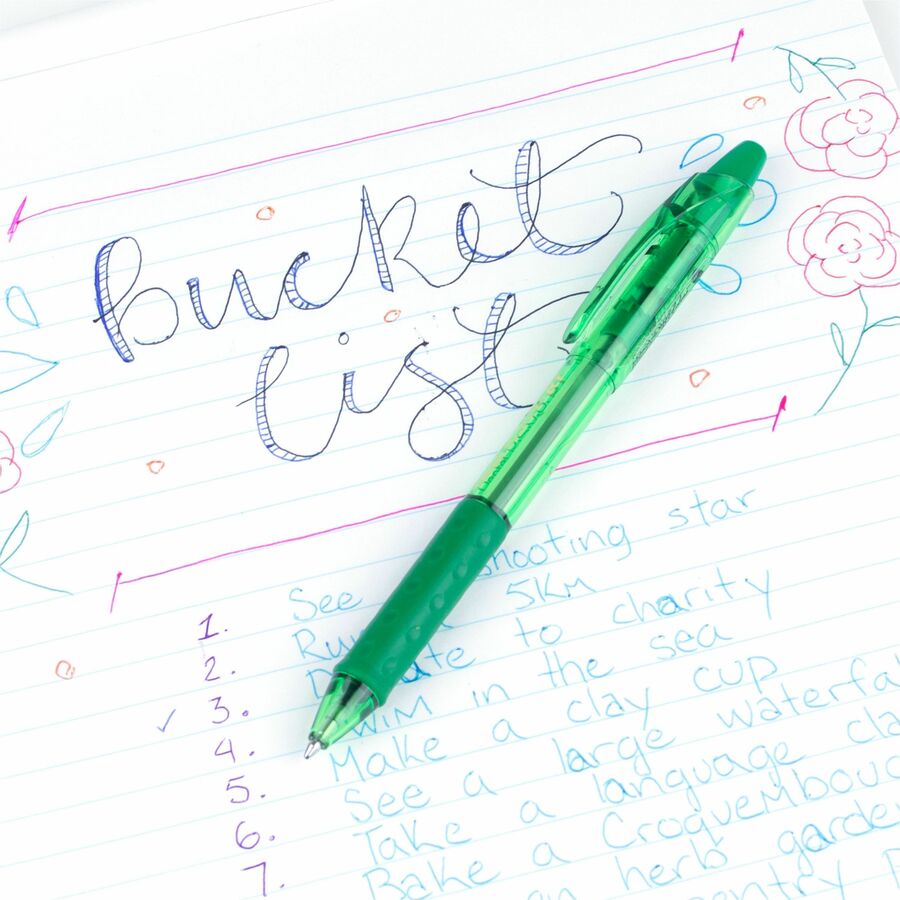 bucket
list
1. See shooting star
2. Run 5KM
✓ 3. Donate to charity
4. Swim in the sea
5. Make a clay cup
6. See a large waterfa
7. Take a language cla
Bake a Croquembouc
an herb garde